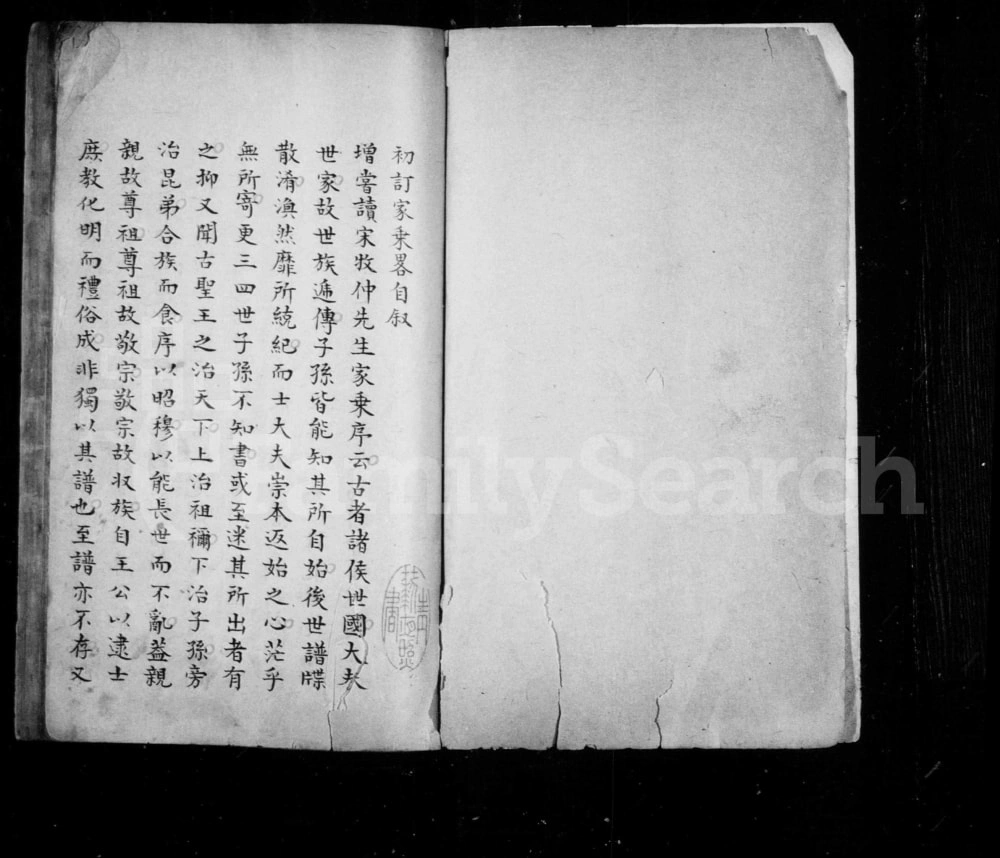 初訂家乗畧自叙
增嘗讀宋牧仲先生家乗序云古者諸侯世國大夫
世家故世族遞傳子孫皆能知其所自始後世譜牒
散淆渙然靡所統紀而士大夫崇本返始之心茫乎
無所寄更三四世子孫不知書或至迷其所出者有
之抑又聞古聖王之治天下上治祖禰下治子孫旁
治昆弟合族而食序以昭穆以能長世而不亂蓋親
親故尊祖尊祖故敬宗敬宗故収族自王公以逮士
庶教化明而禮俗成非獨以其譜也至譜亦不存又
FamilySearch